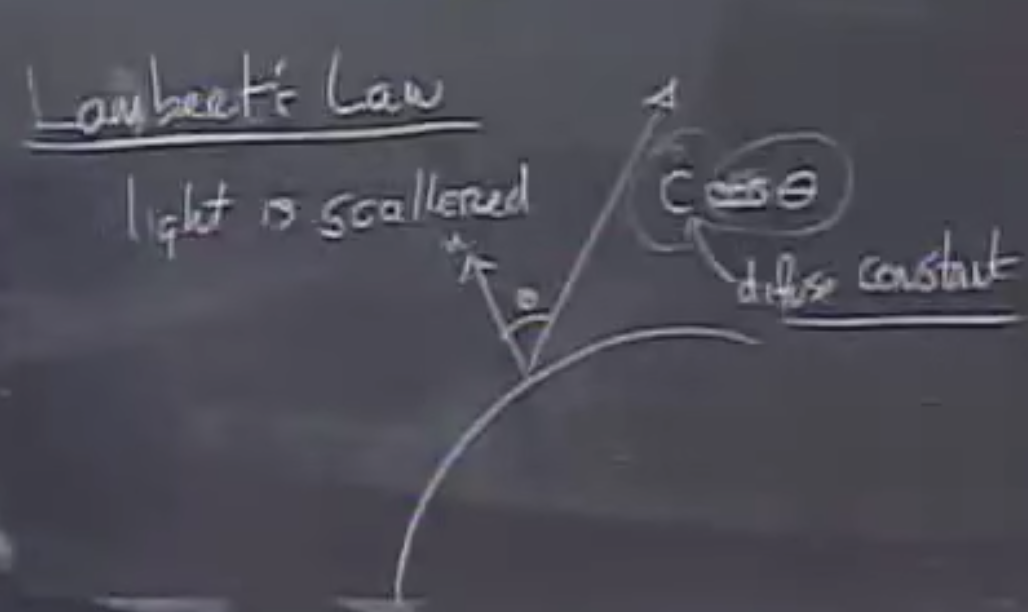 Lambert's Law
light is scattered
C cos θ
n
θ
difuse constant